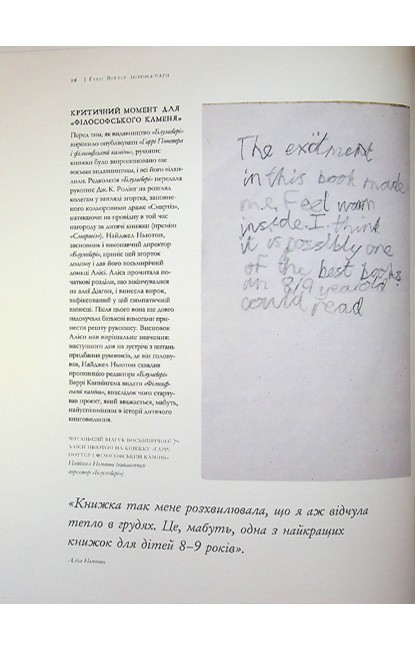 26 | Гаррі Поттер: Історія магії
КРИТИЧНИЙ МОМЕНТ ДЛЯ
«ФІЛОСОФСЬКОГО КАМЕНЯ»
Перед тим, як видавництво «Блумсбері»
вирішило опублікувати «Гаррі Поттера
і філософський камінь», рукопис
книжки було запропоновано ще
восьми видавництвам, і всі його відхи-
лили. Редколегія «Блумсбері» передала
рукопис Дж. К. Ролінґ на розгляд
колегам у вигляді згортка, заповне-
ного кольоровими драже «Смартіз»,
натякаючи на провідну в той час
нагороду за дитячі книжки (премію
«Смартіз»). Найджел Ньютон,
засновник і виконавчий директор
«Блумсбері», приніс цей згорток
додому і дав його восьмирічній
доньці Алісі. Аліса прочитала по-
чаткові розділи, що закінчувалися
на алеї Діаґон, і винесла вирок,
зафіксований у цій симпатичній
записці. Після цього вона ще довго
надокучала батькові вимогами при-
нести решту рукопису. Висновок
Аліси мав вирішальне значення:
наступного дня на зустрічі з питань
придбання рукописів, де він голову-
вав, Найджел Ньютон схвалив
пропозицію редактора «Блумсбері»
Беррі Каннінгема видати «Філософ-
ський камінь», внаслідок чого старту-
вав проект, який вважається, мабуть,
найуспішнішим в історії дитячого
книговидання.
ЧИТАЦЬКИЙ ВІДГУК ВОСЬМИРІЧНОЇ
АЛІСИ НЬЮТОН НА КНИЖКУ «ГАРРІ
ПОТТЕР І ФІЛОСОФСЬКИЙ КАМІНЬ»
Найджел Ньютон (виконавчий
директор «Блумсбері»)
The exitment
in this book made
me feel warm
inside. I think
it is possibly one
of the best books
an 8/9 year old
could read
«Книжка так мене розхвилювала, що я аж відчула
тепло в грудях. Це, мабуть, одна з найкращих
книжок для дітей 8–9 років».
Аліса Ньютон